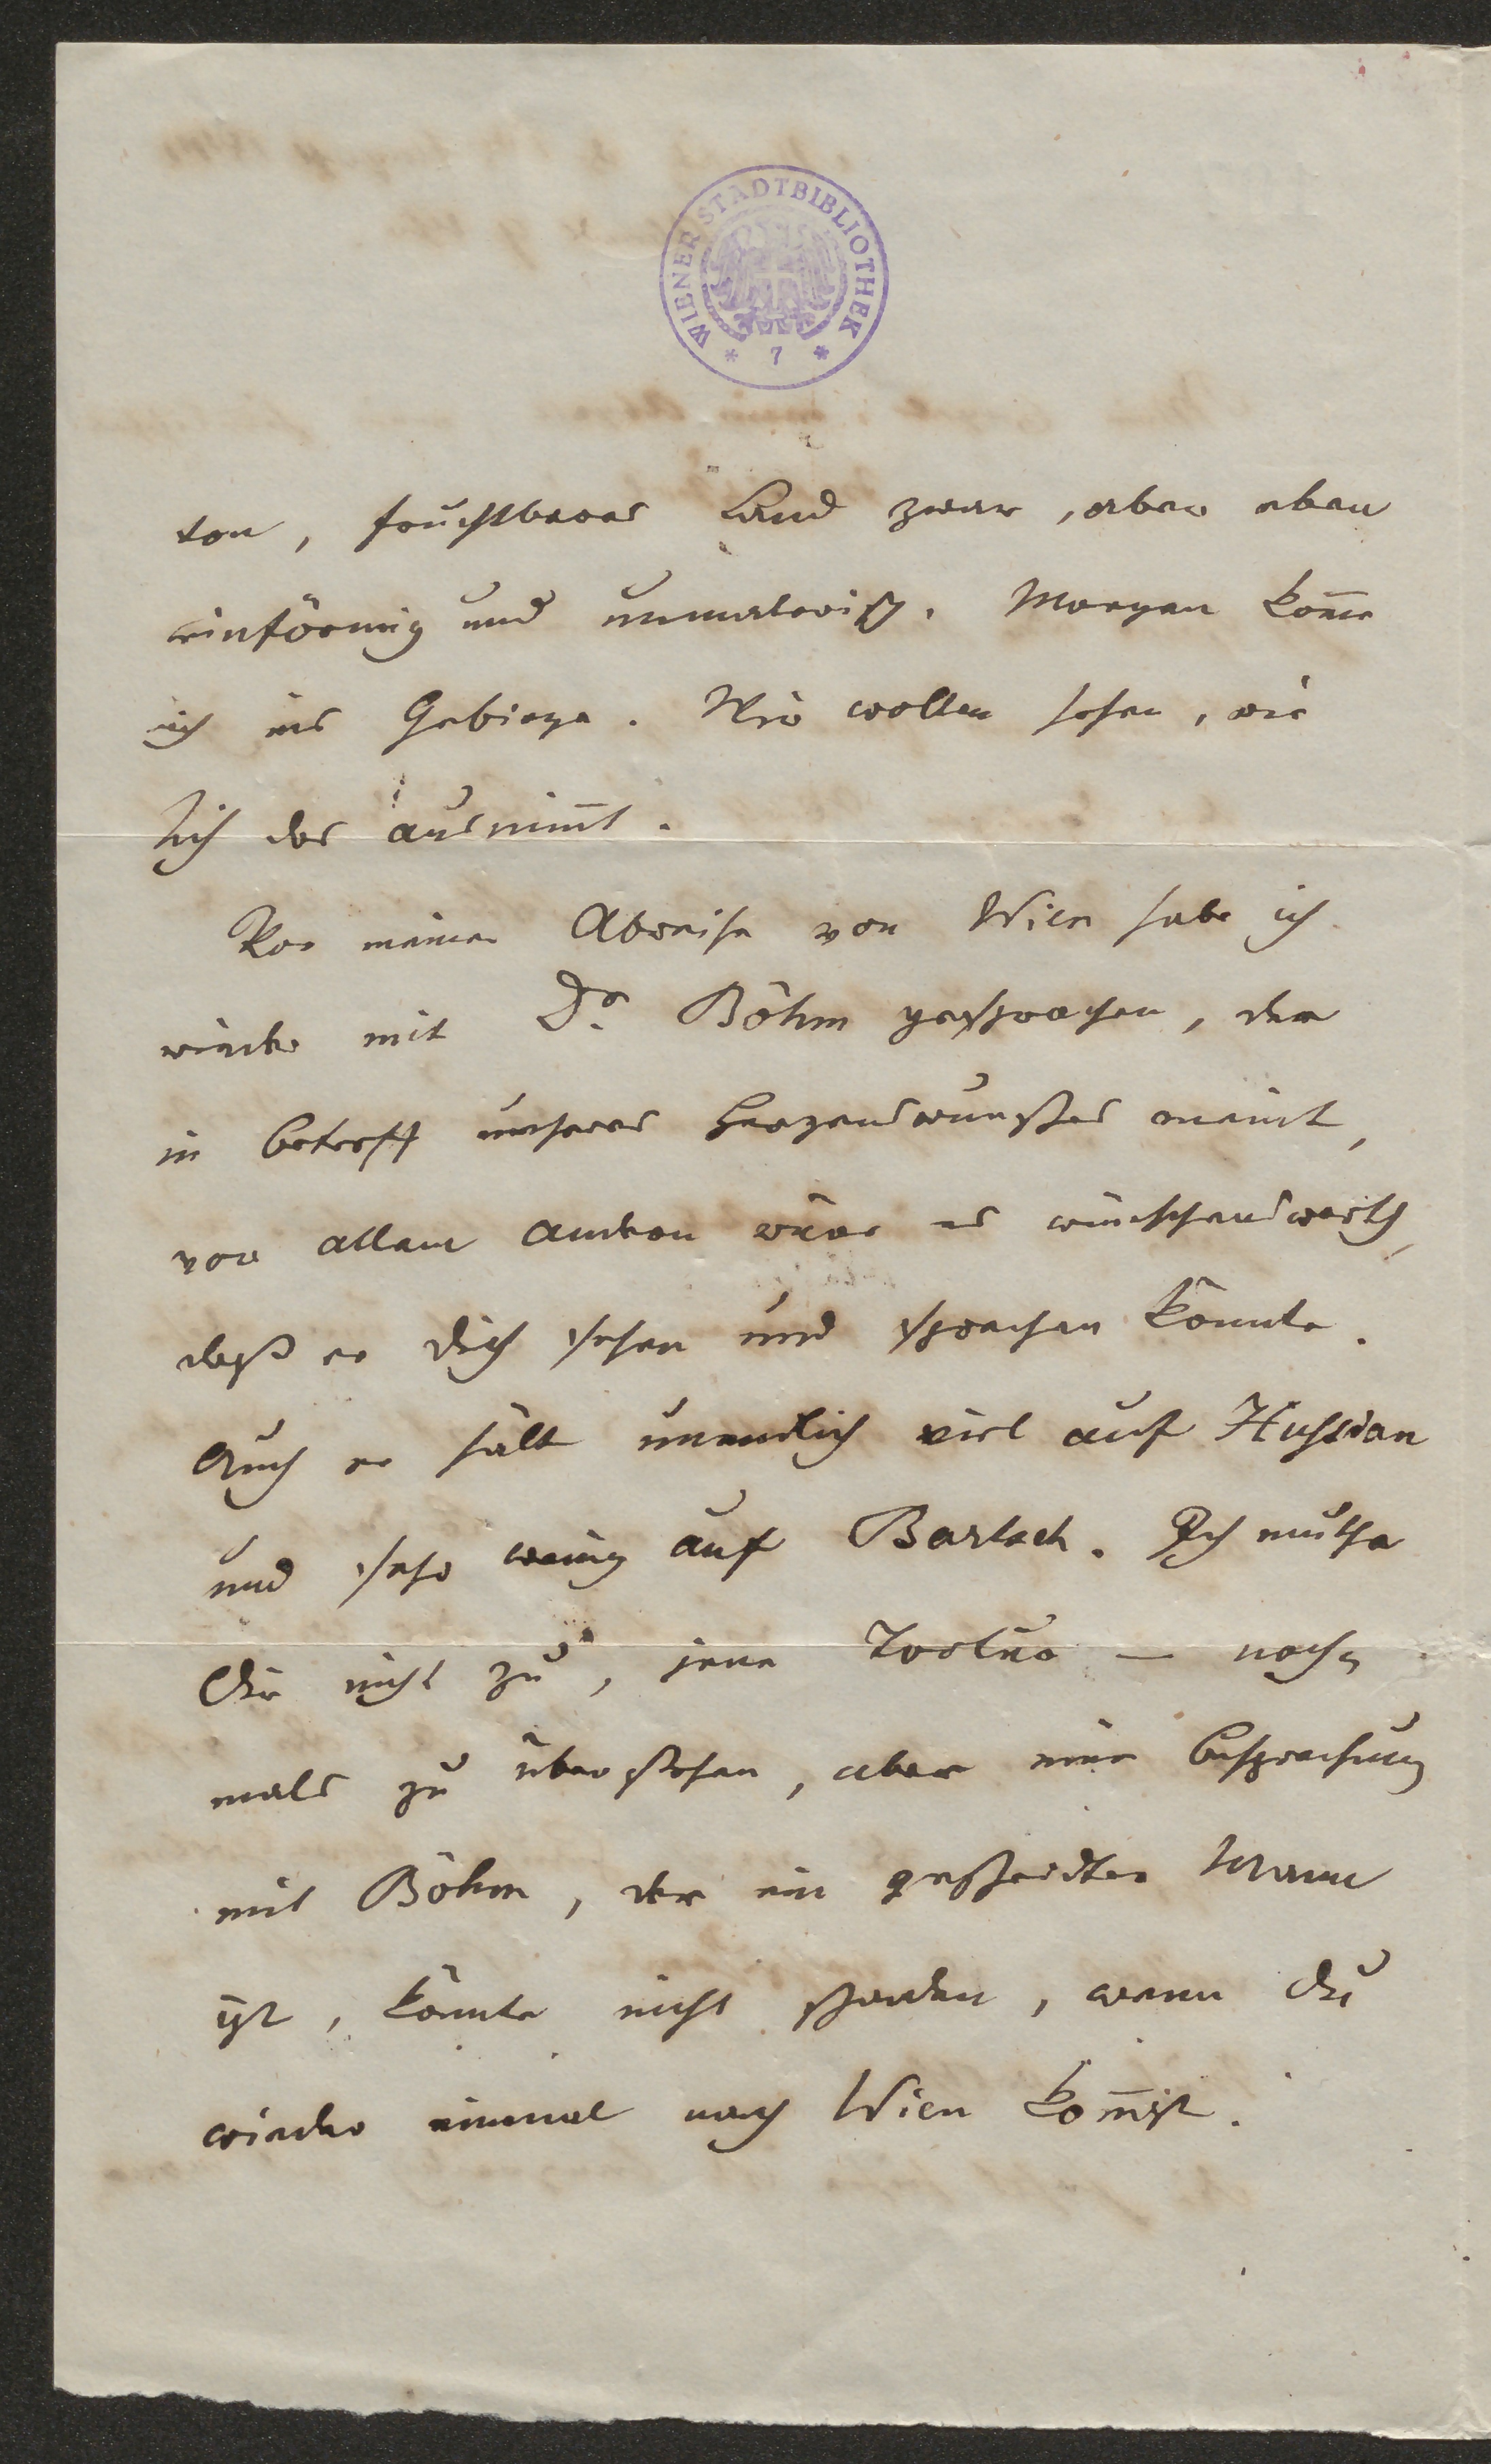 WIENER STADTBIBLIOTHEK
* 7 *
ten, fruchtbares Land zwar, aber eben
einförmig und unmalerisch. Morgen kom̅e
ich ins Gebirge. Wir wollen sehen, wie
sich das ausnim̅t.
Vor meiner Abreise von Wien habe ich
wieder mit Dr. Böhm gesprochen, der
in betreff unseres Herzenswunsches meint,
vor allem andern wäre es wünschenswerth,
daß er Dich sehen und sprechen könnte.
Auch er hält unendlich viel auf Hussian
und sehr wenig auf Bartsch. Ich muthe
Dir nicht zu, jene Tortur — noch-
mals zu überstehen, aber eine Besprechung
mit Böhm, der ein gescheidter Mann
ist, könnte nicht schaden, wenn Du
wieder einmal nach Wien kom̅st.